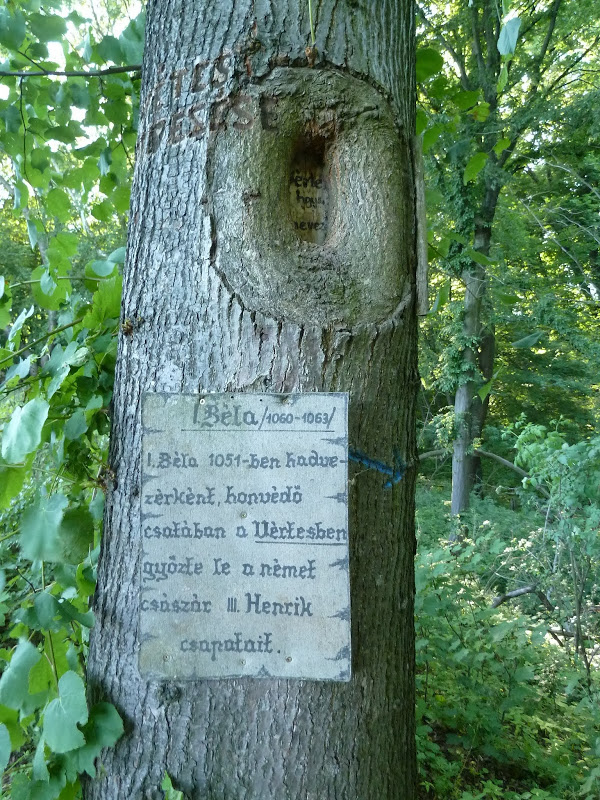 I Béla /1060-1063/
I. Béla 1051-ben hadve-
zérként, honvédő
csatában a Vértesben
győzte le a német
császár III. Henrik
csapatait.